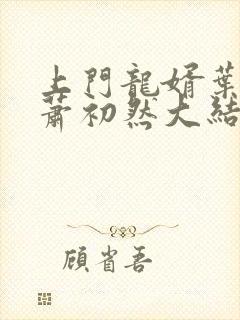 上門龍婿葉
蕭初然大結
顧省吾